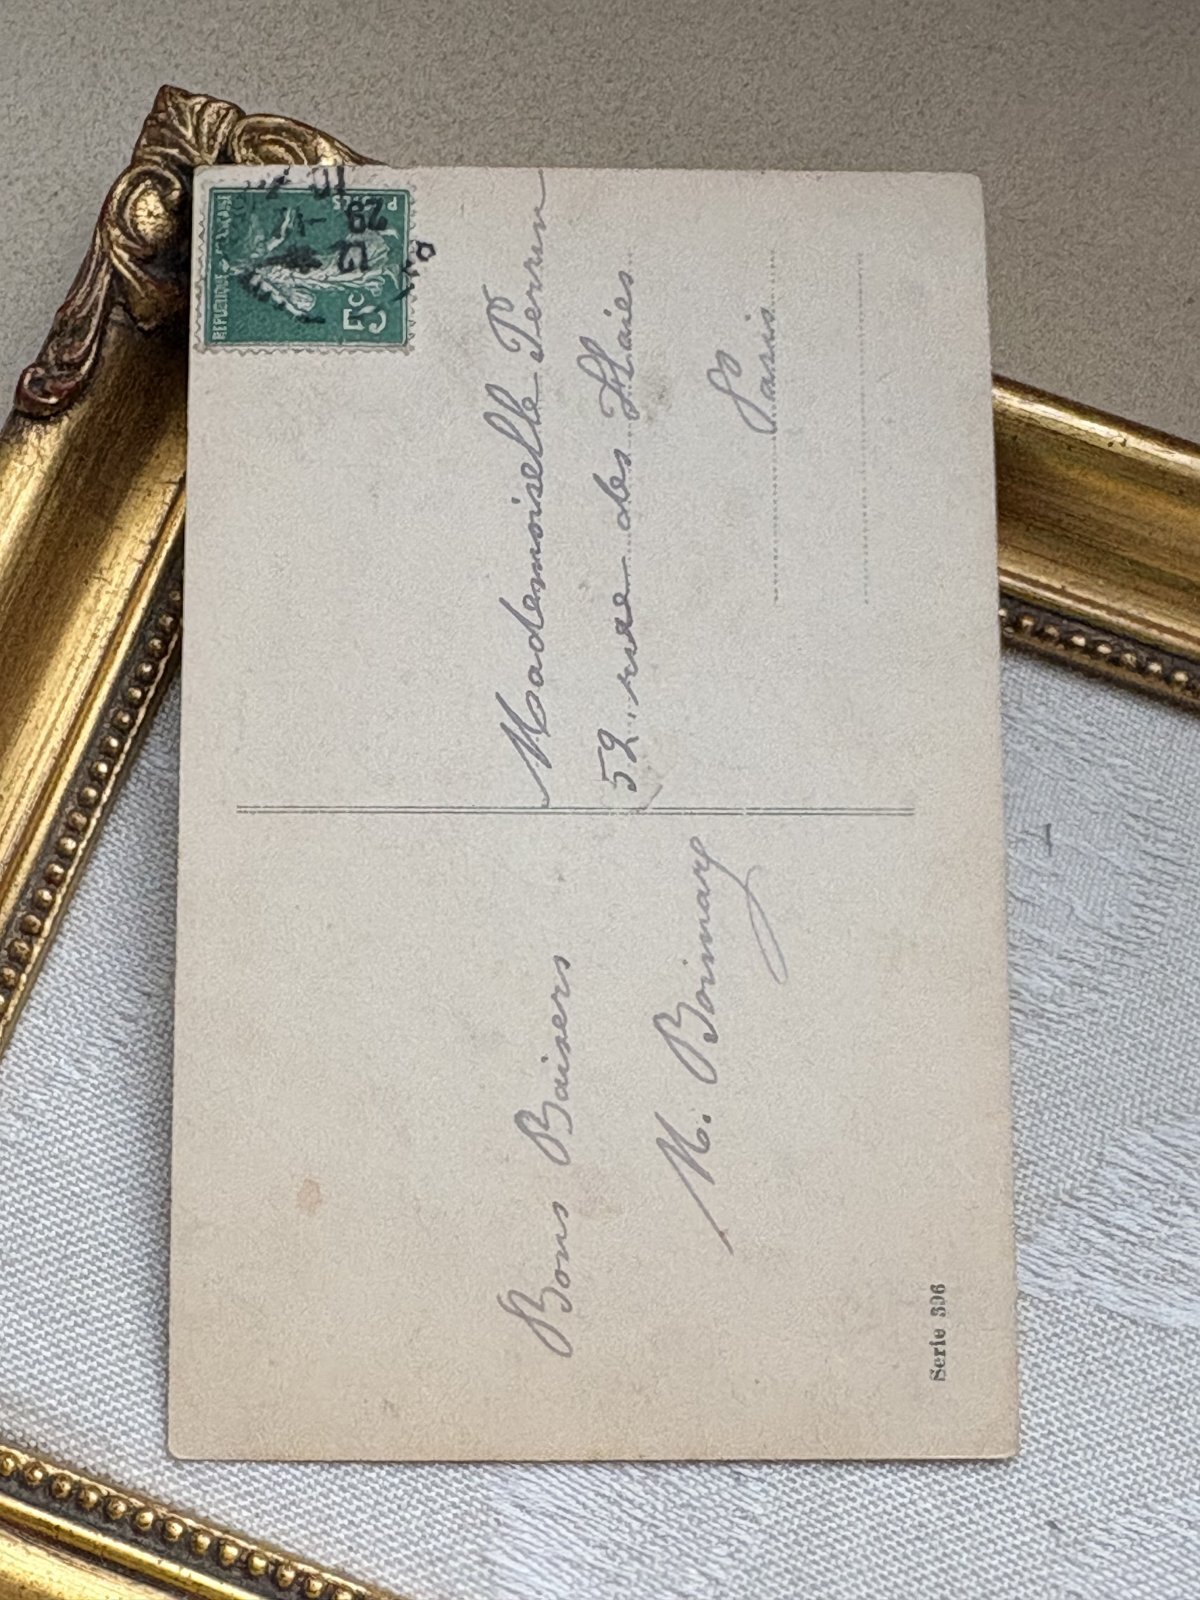 Bons Baisers
M. Boimary
Mademoiselle Perrin
52 rue des Haies
Paris
REPUBLIQUE FRANÇAISE
POSTES
5c
29
12
Serie 396